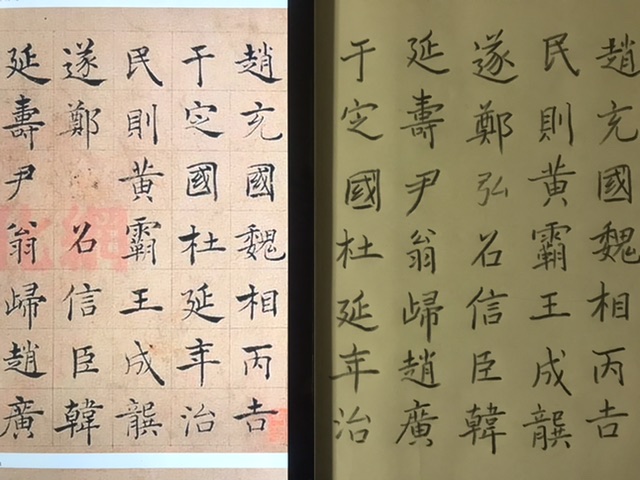 趙充國魏相丙吉
于定國杜延年治
民則黃霸王成龔
遂鄭召信臣韓
延壽尹翁歸趙廣
趙充國魏相丙吉
民則黃霸王成龔
遂鄭弘召信臣韓
延壽尹翁歸趙廣
于定國杜延年治